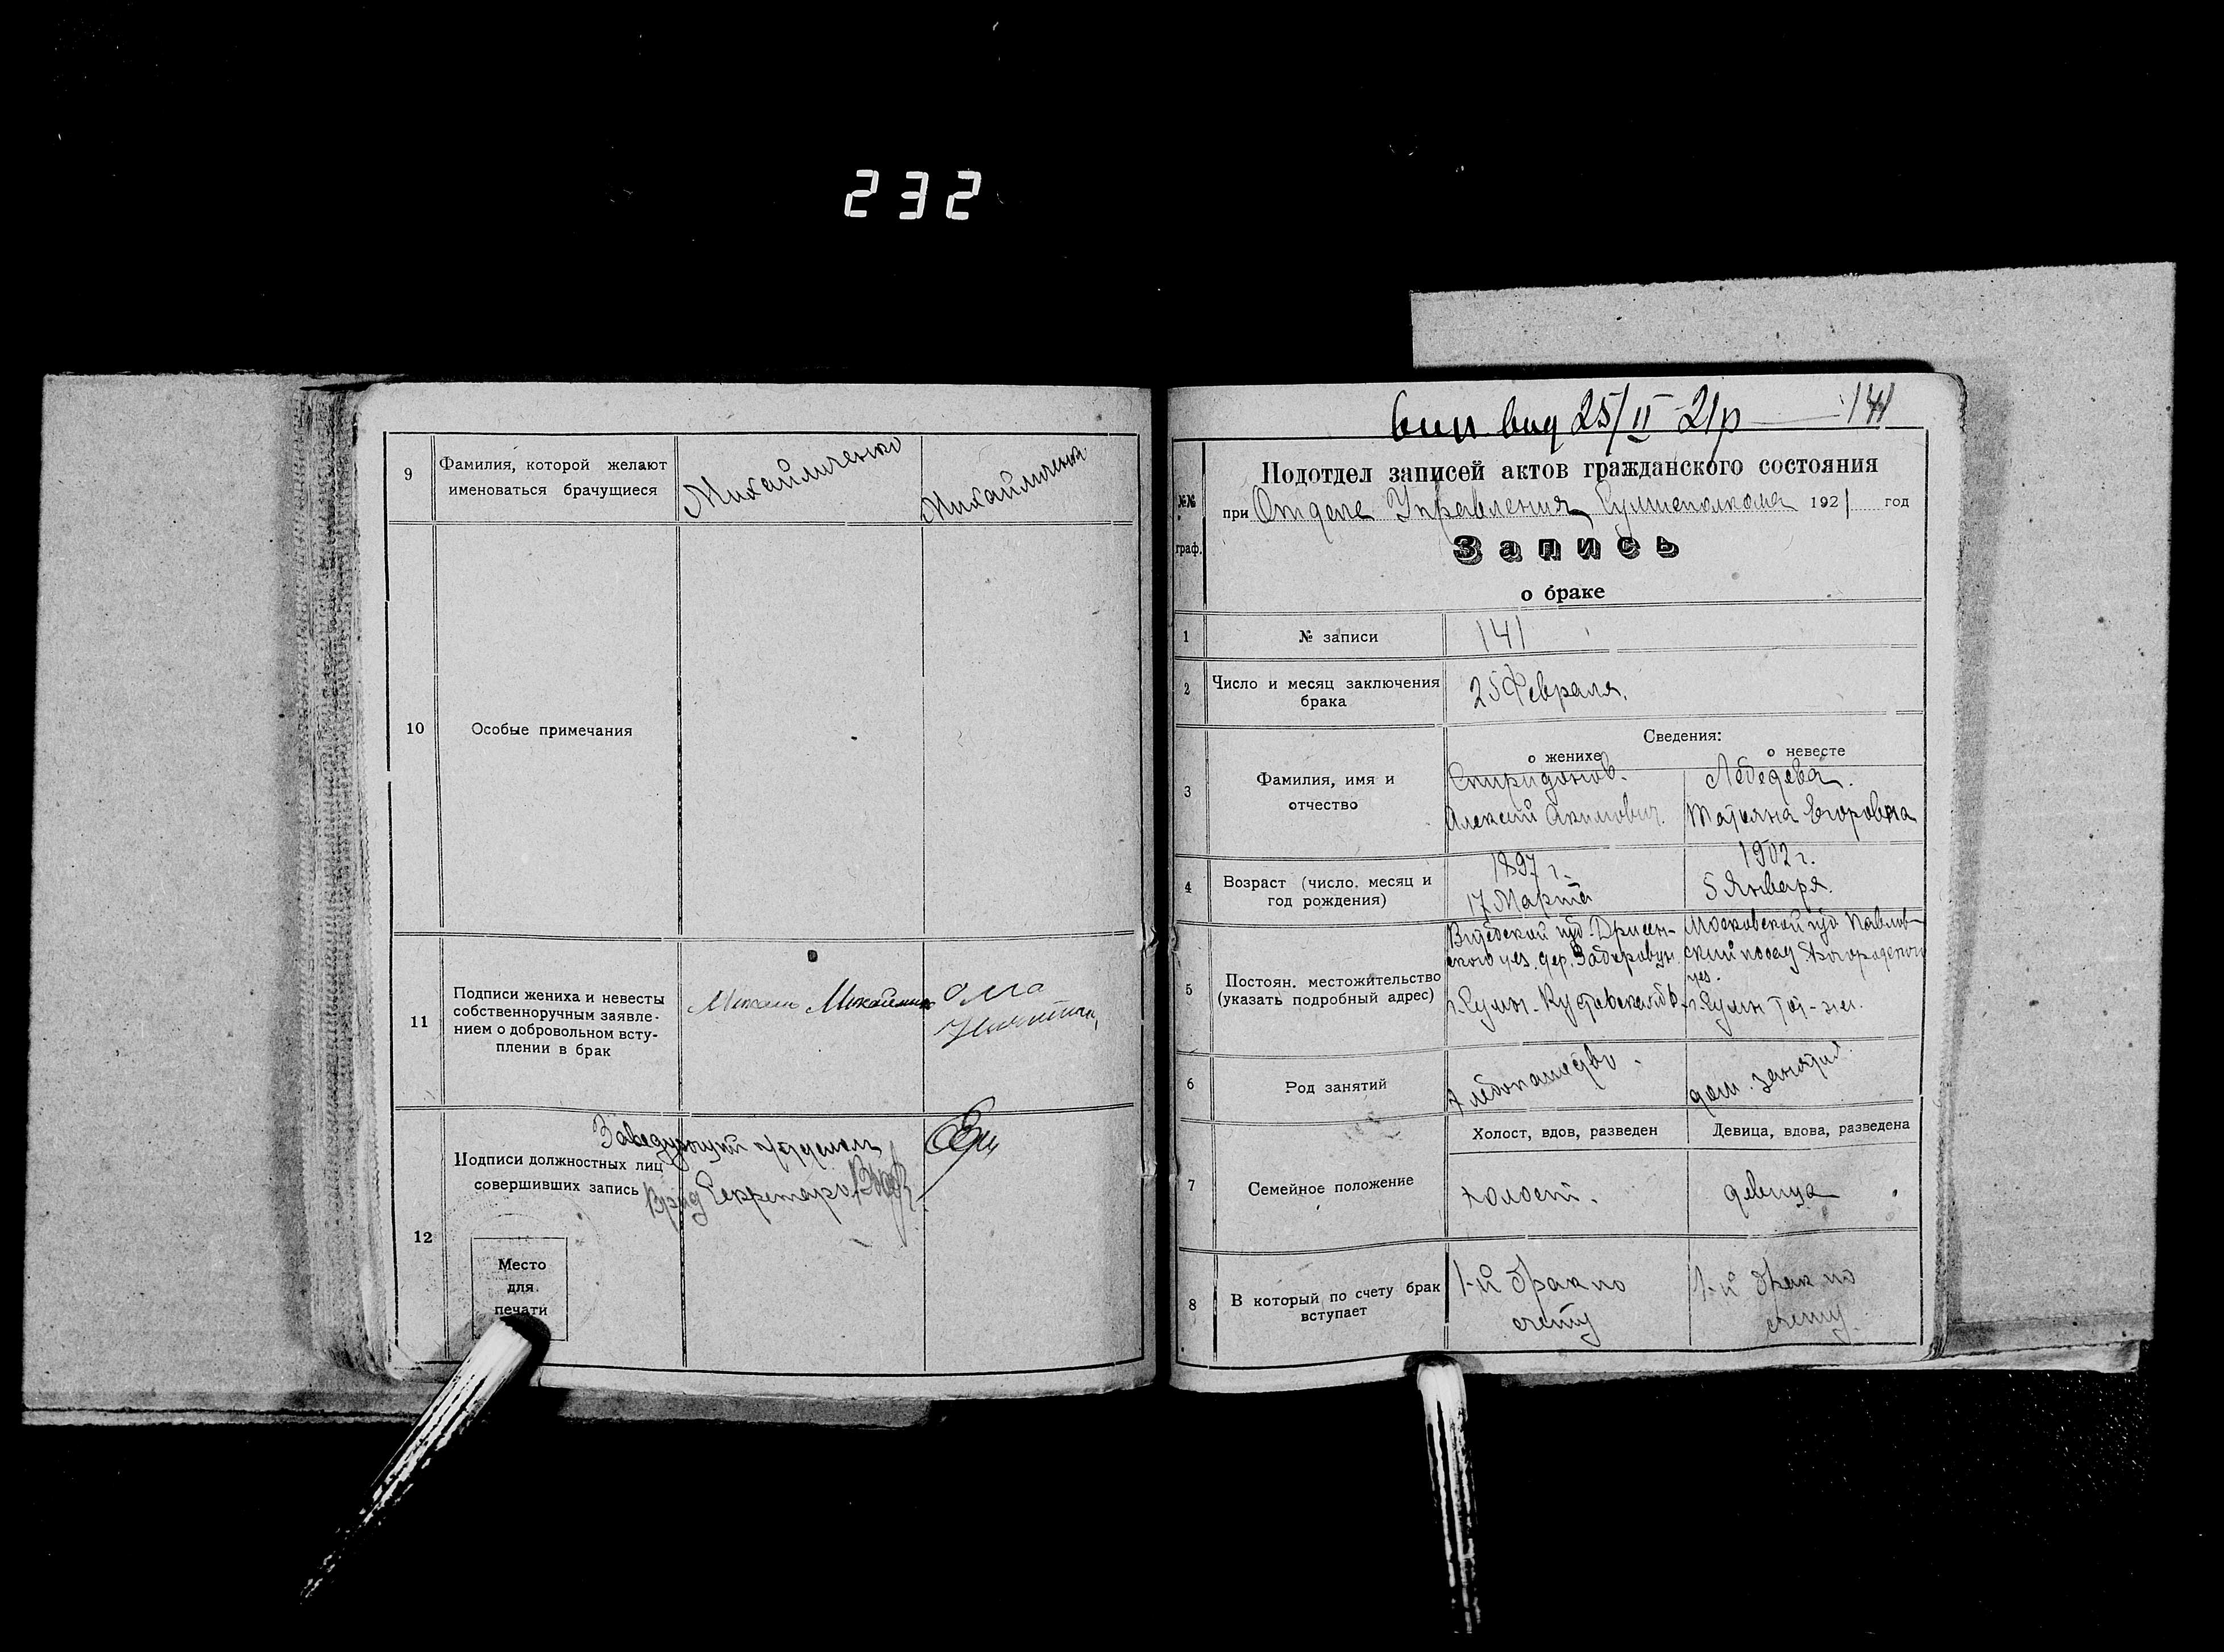 232
9
Фамилия, которой желают
именоваться брачущиеся
Михайличенко
Михайличенко
10
Особые примечания
11
Подписи жениха и невесты
собственноручным заявле-
нием о добровольном всту-
плении в брак
12
Заведующий
Подписи должностных лиц
совершивших запись
Врид Секретаря
Место
для
печати
вид 25/II 21р 141
№№
граф.
Подотдел записей актов гражданского состояния
при Отделе Управления 1921 год
Запись
о браке
1
№ записи
141
2
Число и месяц заключения
брака
25 Февраля.
Сведения:
о женихе
о невесте
3
Фамилия, имя и
отчество
Спиридонов.
Алексей Акимович.
Лебедева.
Татьяна Егоровна
4
Возраст (число, месяц и
год рождения)
1897 г.
17 Марта
1902 г.
5 Января.
5
Постоян. местожительство
(указать подробный адрес)
Витебской губ. Дрисен-
ского уез. дер.
г. Сумы.
Московской губ Павлов-
ский посад Богородской
уез.
г. Сумы
6
Род занятий
Хлебопашество.
дом. занятия
7
Семейное положение
Холост, вдов, разведен
Девица, вдова, разведена
холост.
девица
8
В который по счету брак
вступает
1-й брак по
счету
1-й брак по
счету.